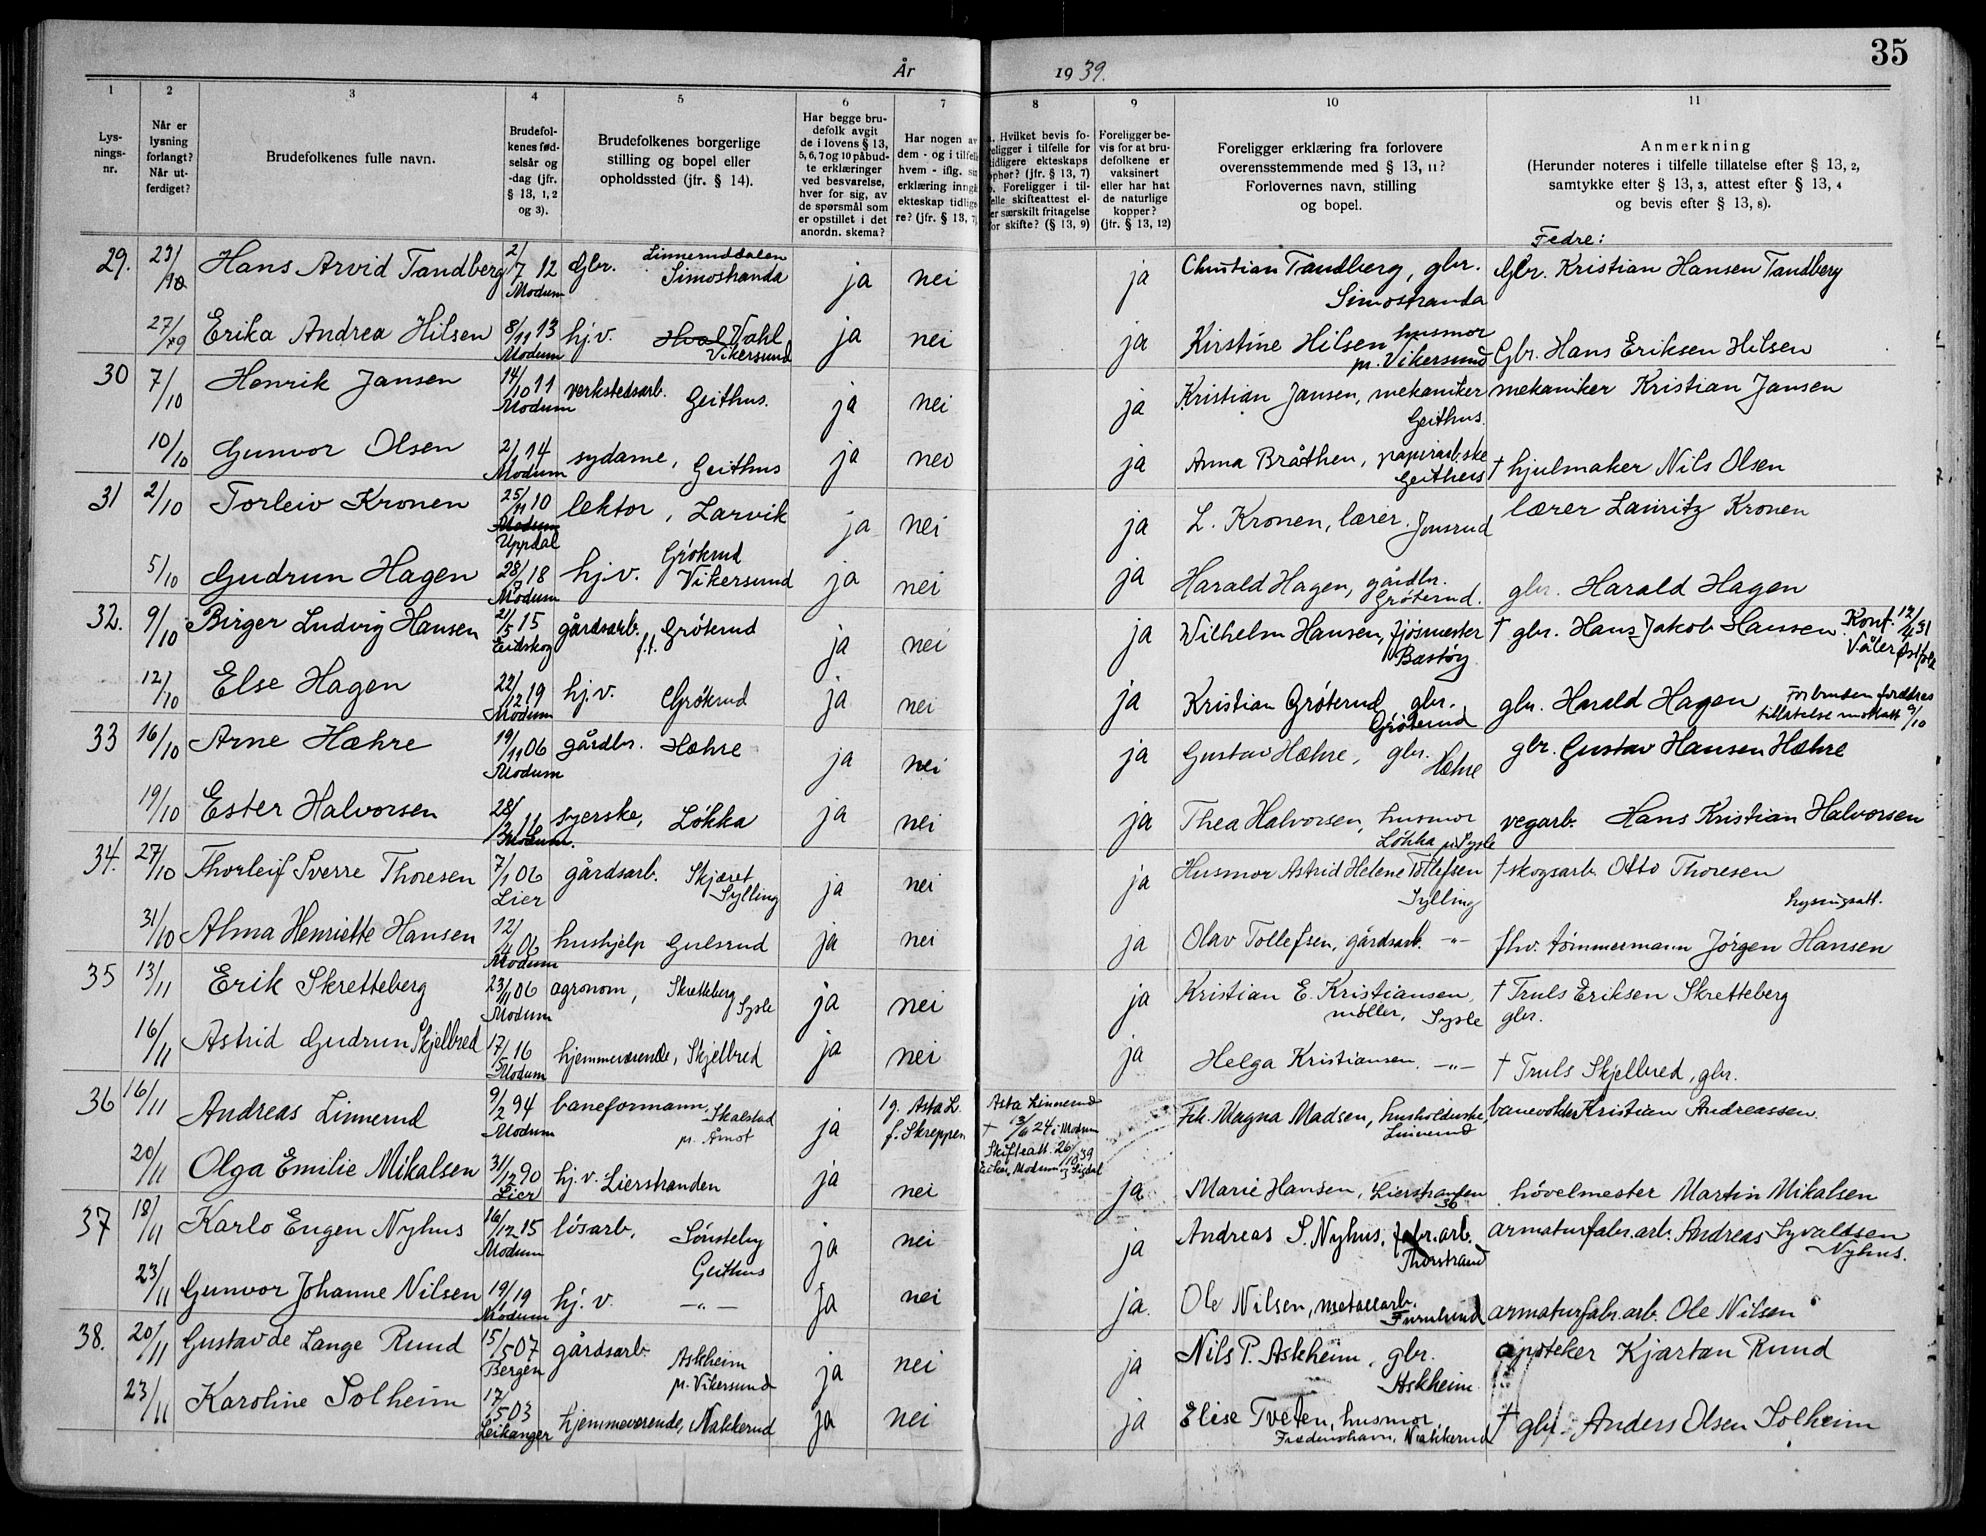 35
År 1939.
1 2 3 4 5 6 7 8 9 10 11
Lysningsnr.
Når er lysning forlangt? Når utferdiget?
Brudefolkenes fulle navn.
Brudefolkenes fødselsår og -dag (jfr. § 13, 1, 2 og 3).
Brudefolkenes borgerlige stilling og bopel eller opholdssted (jfr. § 14).
Har begge brudefolk avgit de i lovens § 13, 5, 6, 7 og 10 påbudte erklæringer ved besvarelse, hver for sig, av de spørsmål som er opstillet i det anordn. skema?
Har nogen av dem - og i tilfelle hvem - iflg. sin erklæring inngått ekteskap tidligere? (jfr. § 13, 7)
a. Hvilket bevis foreligger i tilfelle for tidligere ekteskaps ophør? (jfr. § 13, 7) b. Foreligger i tilfelle skifteattest eller særskilt fritagelse for skifte? (§ 13, 9)
Foreligger bevis for at brudefolkene er vaksinert eller har hat de naturlige kopper? (jfr. § 13, 12)
Foreligger erklæring fra forlovere overensstemmende med § 13, 11? Forlovernes navn, stilling og bopel.
Anmerkning (Herunder noteres i tilfelle tillatelse efter § 13, 2, samtykke efter § 13, 3, attest efter § 13, 4 og bevis efter § 13, 8).
Fedre:
29. 23/10 Hans Arvid Tandberg 2/7 12 Modum Gbr. Linneruddalen Simostranda ja nei ja Christian Tandberg, gbr. Simostranda Gbr. Kristian Hansen Tandberg
27/9 Erika Andrea Hilsen 8/11 13 Modum hj.v. Hval Vahl Vikersund ja nei ja Kirstine Hilsen husmor pr. Vikersund Gbr. Hans Eriksen Hilsen
30 7/10 Henrik Jansen 14/10 11 Modum verkstedsarb. Geithus. ja nei ja Kristian Jansen, mekaniker Geithus. mekaniker Kristian Jansen
10/10 Gunvor Olsen 2/1 14 Modum sydame, Geithus ja nei ja Anna Bråthen, papirarb.ske Geithus † hjulmaker Nils Olsen
31 2/10 Torleiv Kronen 25/11 10 Modum Uppdal lektor, Larvik ja nei ja L. Kronen, lærer. Jonsrud lærer Lauritz Kronen
5/10 Gudrun Hagen 28/7 18 Modum hj.v. Grøkrud Vikersund ja nei ja Harald Hagen, gårdbr. Grøterud. gbr. Harald Hagen
32. 9/10 Birger Ludvig Hansen 21/5 15 Eidskog gårdsarb. f.t. Grøterud ja nei ja Wilhelm Hansen, fjøsmester Bastøy † gbr. Hans Jakob Hansen. Konf. 12/4 31 Våler Østfold
12/10 Else Hagen 22/12 19 Modum hj.v. Grøkrud ja nei ja Kristian Grøterud, gbr. Grøterud gbr. Harald Hagen For bruden foreldres tillatelse mottatt 9/10
33 16/10 Arne Hæhre 19/11 06 Modum gårdbr. Hæhre ja nei ja Gustav Hæhre, gbr. Hæhre gbr. Gustav Hansen Hæhre
19/10 Ester Halvorsen 28/2 11 Modum. syerske, Løkka ja nei ja Thea Halvorsen, husmor Løkka pr. Sysle vegarb. Hans Kristian Halvorsen
34. 27/10 Thorleif Sverre Thoresen 7/1 06 Lier gårdsarb. Skjæret Sylling ja nei ja Husmor Astrid Helene Tollefsen Sylling † skogsarb. Otto Thoresen
lysningsatt.
31/10 Alma Henriette Hansen 12/4 06 Modum hushjelp Gulsrud ja nei ja Olav Tollefsen, gårdsarb. -"- fhv. tømmermann Jørgen Hansen
35 13/11 Erik Skretteberg 23/11 06 Modum agronom, Skretteberg Sysle ja nei ja Kristian E. Kristiansen, møller, Sysle † Truls Eriksen Skretteberg gbr.
16/11 Astrid Gudrun Skjelbred 17/5 16 Modum hjemmeværende, Skjelbred ja nei ja Helga Kristiansen. -"- † Truls Skjelbred, gbr.
36 16/11 Andreas Linnerud 9/2 94 Modum baneformann, Skalstad pr. Åmot ja 1g. Asta L. f. Skreppen Asta Linnerud † 13/6 24 i Modum Skifteatt. 26/10 39 Eiker, Modum og Sigdal Frk. Magna Madsen, husholderske, Linnerud banevokter Kristian Andreassen.
20/11 Olga Emilie Mikalsen 31/12 90 Lier hj.v. Lierstranden ja nei ja Marie Hansen, Lierstranden 30 høvelmester Martin Mikalsen
37 18/11 Karlo Eugen Nyhus 16/12 15 Modum løsarb, Sønsteby Geithus ja nei ja Andreas S. Nyhus, fabr.arb. Thorstrand armaturfabr.arb. Andreas Syvaldsen Nyhus.
23/11 Gunvor Johanne Nilsen 19/1 19 Modum hj.v. -"- ja nei ja. Ole Nilsen, metallarb. Furulund armaturfabr.arb. Ole Nilsen
38. 20/11 Gustav de Lange Rund 15/5 07 Bergen gårdsarb. Askheim pr. Vikersund ja nei ja Nils P. Askheim, gbr. Askheim apoteker Kjartan Rund
23/11 Karoline Solheim 17/5 03 Leikanger hjemmeværende, Nakkerud ja nei ja Elise Tveten, husmor, Fredenshavn, Nakkerud † gbr. Anders Olsen Solheim